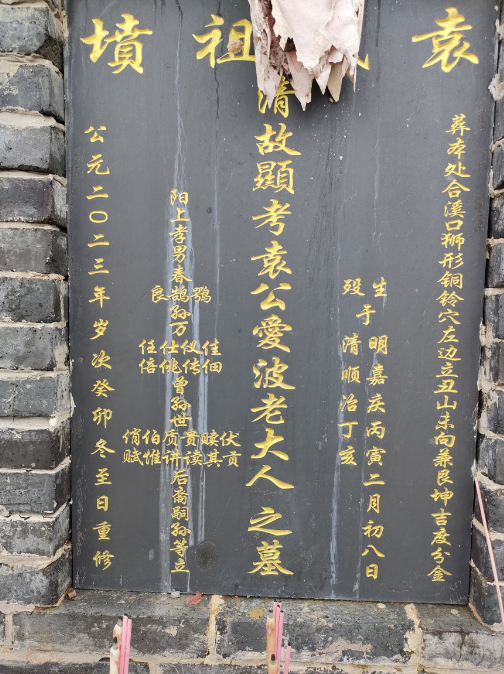 袁祖墳
葬本处合溪口狮形铜铃穴左边立丑山未向兼艮坤吉度分金
生殁于
明嘉庆丙寅二月初八日
清顺治丁亥
清故顯考袁公愛波老大人之墓
阳上孝男春
鹄良
孙万
佳仪仕任
佃传佻倍
曾孙世
伏赎贵质伯俏
贡其读讲惟赋
后裔嗣孙等立
公元二〇二三年岁次癸卯冬至日重修